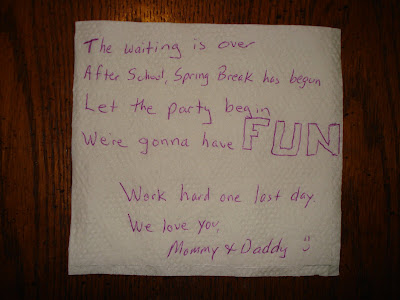 The waiting is over
After School, Spring Break has begun
Let the party begin
We're gonna have FUN
Work hard one last day.
We love you,
Mommy & Daddy